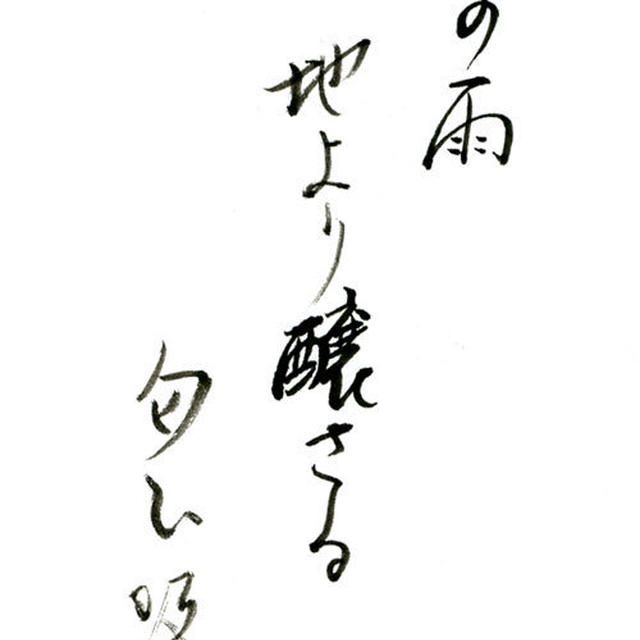 の雨
地より醸さる
匂ひ吸